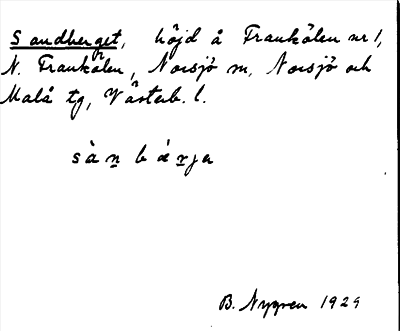 Sandberget, höjd å Frankälen nr 1,
N. Frankälen, Norsjö sn, Norsjö och
Malå tg, Västerb. l.
sàn bárja
B. Nygren 1929